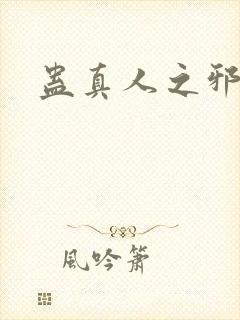 蛊真人之邪
風吟簫